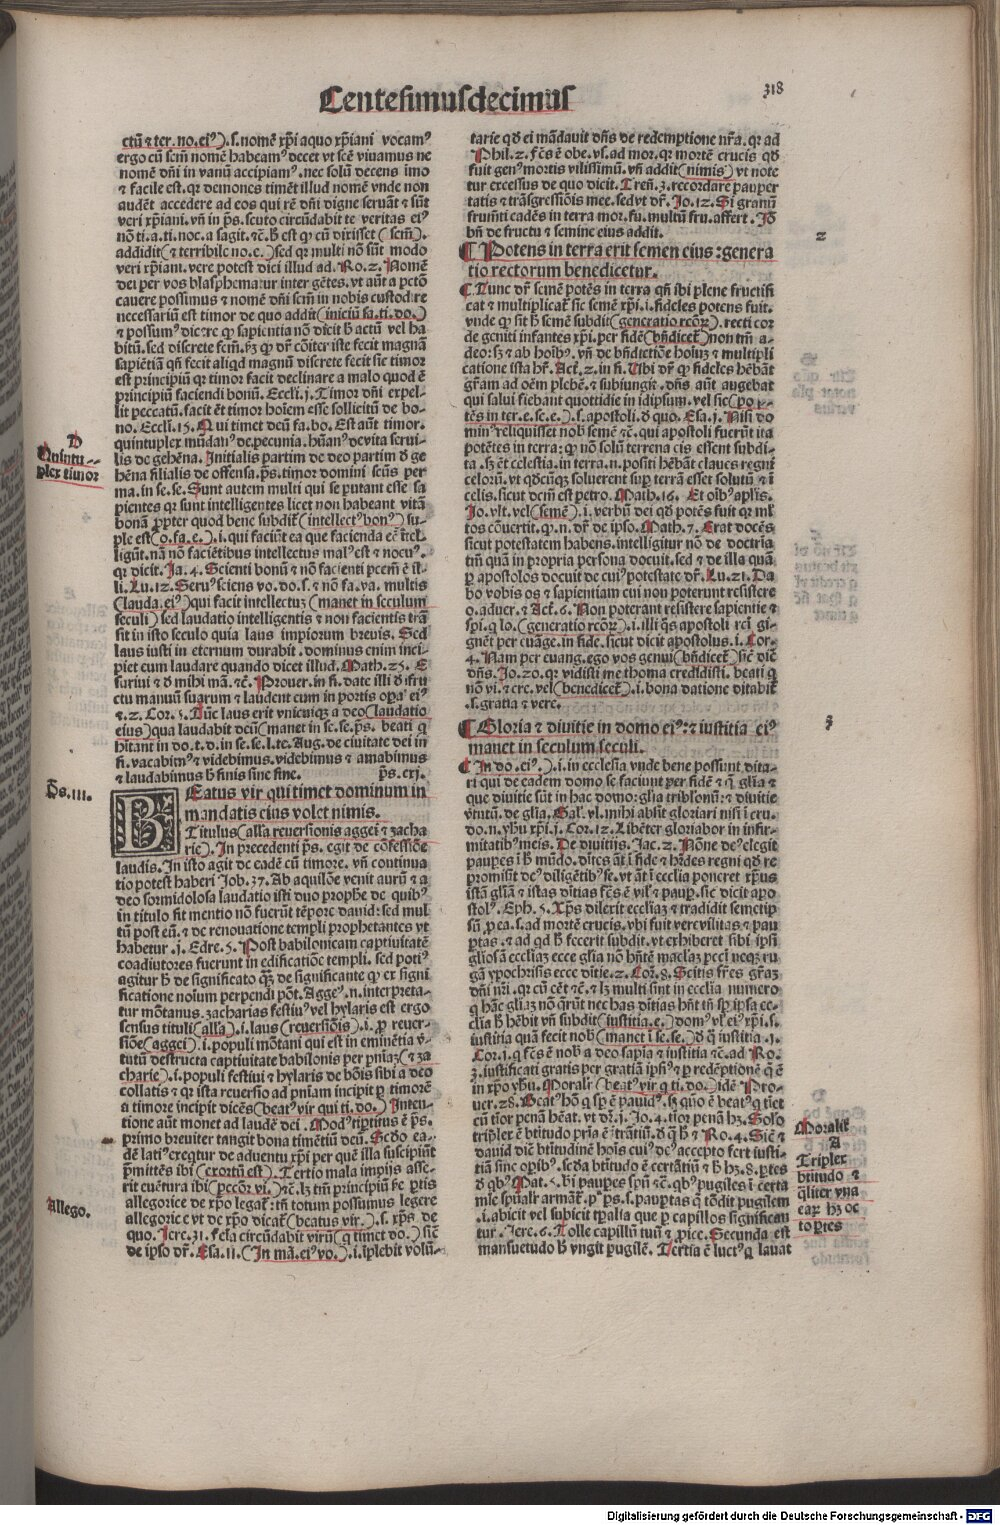 Centesimusdecimus
318
ctū ⁊ ter. no. eiꝰ). s. nomē xp̄i a quo xp̄iani vocamꝰ
ergo cū scm̄ nomē habeamꝰ decet vt scē viuamus ne
nomē dn̄i in vanū accipiamꝰ. nec solū decens imo
⁊ facile est. qr demones timēt illud nomē vnde non
audēt accedere ad eos qui rē dn̄i digne seruāt ⁊ sūt
veri xp̄iani. vn̄ in p̄s. scuto circūdabit te veritas eiꝰ
nō ti. a. ti. noc. a sagit. ⁊c̄. h̄ est ꝙ cū dixisset (scm̄).
addidit (⁊ terribile no. e.) sed qr multi nō sūt modo
veri xp̄iani. vere potest dici illud ad. Ro. 2. Nomē
dei per vos blasphematur inter gētes. vt aūt a pctō
cauere possimus ⁊ nomē dn̄i scm̄ in nobis custodire
necessariū est timor de quo addit (iniciū sa. ti. do.)
⁊ possumꝰ dicere ꝙ sapientia nō dicit h̄ actū vel ha
bitū. sed discrete
sapiētiā qn̄ fecit aliqd magnū discrete fecit sic timor
est principiū qr timor facit declinare a malo quod ē
principiū faciendi bonū. Eccli. j. Timor dn̄i expel-
lit peccatū. facit ēt timor hoīem esse sollicitū de bo-
no. Eccli. 15. Qui timet deū fa. bo. Est aūt timor.
quintuplex mūdanꝰ de pecunia. hūanꝰ de vita serui-
lis de gehēna. Initialis partim de deo partim d̄ ge
hēna filialis de offensa. p̄s. timor domini scūs per
ma. in se. se. Sunt autem multi qui se putant esse sa
pientes qr sunt intelligentes licet non habeant vitā
bonā ꝓpter quod bene subdit (intellectꝰ bonꝰ) su-
ple est (o. fa. e.). i. qui faciūt ea que facienda eē
ligūt. nā nō faciētibus intellectus malꝰ est ⁊ nocuꝰ.
qr dicit. Ja. 4. Scienti bonū ⁊ nō facienti pctm̄ ē il-
li. Lu. 12. Seruꝰ sciens vo. do. s. ⁊ nō fa. va. multis
(lauda. eiꝰ) qui facit intellectuꝫ (manet in seculum
seculi) sed laudatio intelligentis ⁊ non facientis trā
sit in isto seculo quia laus impiorum breuis. Sed
laus iusti in eternum durabit. dominus enim inci-
piet eum laudare quando dicet illud. Math. 25. E
suriui ⁊ d mihi mā. ⁊c̄. Prouer. in fi. date illi d̄ fru
ctu manuū suarum ⁊ laudent eum in portis oꝑa eiꝰ
⁊. 2. Cor. 5. Tūc laus erit vnicuiqꝫ a deo (laudatio
eius) qua laudabit deū (manet in se. se. p̄s. beati q̄
hītant in do. t. d. in se. se. l. te. Aug. de ciuitate dei in
fi. vacabimꝰ ⁊ videbimus. videbimus ⁊ amabimus
⁊ laudabimus h̄ finis sine fine. p̄s. cxj.
BEatus vir qui timet dominum in
mandatis eius volet nimis.
Titulus (alla reuersionis aggei ⁊ zacha
rie). In precedenti p̄s. egit de cōfessiōe
laudis. In isto agit de eadē cū timore. vn̄ continua
tio potest haberi Job. 37. Ab aquilōe venit aurū ⁊ a
deo formidolosa laudatio isti duo prophe de quibꝰ
in titulo fit mentio nō fuerūt tēpore dauid: sed mul
tū post eū. ⁊ de renouatione templi prophetantes vt
habetur. j. Edre. 5. Post babilonicam captiuitatē
coadiutores fuerunt in edificatiōe templi. sed potiꝰ
agitur h̄ de significato q̄ꝫ de significante ꝙ ex signi
ficatione noīum perpendi pōt. Aggeꝰ. n. interpreta-
tur mōtanus. zacharias festiuꝰ vel hylaris est ergo
sensus tituli (alla). i. laus (reuersiōis). i. ꝓ reuer-
siōe (aggei). i. populi mōtani qui est in eminētia v̓-
tutū destructa captiuitate babilonis per pniaꝫ (⁊ za
charie). i. populi festiui ⁊ hylaris de bōis sibi a deo
collatis ⁊ qr ista reuersio ad pniam incipit ꝑ timorē
a timore incipit dicēs (beatꝰ vir qui ti. do.) Inten-
tione aūt monet ad laudē dei. Modꝰ tiptitus ē p̄s.
primo breuiter tangit bona timētiū deū. Scdo ea-
dē latiꝰ exeqtur de aduentu xp̄i per quē illa suscipiūt
ꝓmittēs ibi (exortū est). Tertio mala impijs asse-
rit euētura ibi (peccōr vi.) ⁊c̄. lꝫ tm̄ principiū se ꝑtis
allegorice de xp̄o legat̄: tn̄ totum possumus legere
allegorice vt de xp̄o dicat̄ (beatus vir.). s. xp̄s de
quo. Jere. 31. fesa circūdabit virū (q timet do.) siē
de ipso dr̄. Esa. 11. (In mā. eiꝰ vo.). i. īplebit volū-
tarie qd̄ ei mādauit dn̄s de redemptione nr̄a. qr ad
Phil. 2. fcs̄ ē obe. vs. ad mor. qr mortē crucis qd̄
fuit genꝰ mortis vilissimū. vn̄ addit (nimis) vt note
tur excessus de quo dicit. Tren̄. 3. recordare pauper
tatis ⁊ trāsgressiōis mee. sed vt dr̄. Jo. 12. Si granū
frum̄ti cadēs in terra mor. fu. multū fru. affert. Jō
bn̄ de fructu ⁊ semine eius addit.
2
Potens in terra erit semen eius: genera
tio rectorum benedicetur.
Tunc dr̄ semē potēs in terra qn̄ ibi plene fructifi
cat ⁊ multiplicat̄ sic semē xp̄i. i. fideles potens fuit.
vnde ꝙ sit h̄ semē subdit (generatio rcōꝝ). recti cor
de geniti infantes xp̄i. per fidē (bn̄dicet̄) non tm̄ a-
deo: sꝫ ⁊ ab hoībꝰ. vn̄ de bn̄dictiōe hoīuꝫ ⁊ multipli
catione ista hr̄. Act̄. 2. in fi. Ubi dr̄ ꝙ fideles hēbāt
gr̄am ad oēm plebē. ⁊ subiungit̄. dn̄s aūt augebat
qui salui fiebant quottidie in idipsum. vel sic (po-
tēs in ter. e. se. e.). s. apostoli. d̄ quo. Esa. j. Nisi do
minꝰ reliquisset nob̄ semē ⁊c̄. qui apostoli fuerūt ita
potētes in terra: ꝙ nō solū terrena eis essent subdi-
ta. sꝫ ēt celestia. in terra. n. positi hēbāt claues regni
celoꝝ. vt qd̄cūqꝫ soluerent suꝑ terrā esset solutū ⁊ ī
celis. sicut dcm̄ est petro. Math. 16. Et oībꝰ apl̄is.
Jo. vlt. vel (semē). i. verbū dei qd̄ potēs fuit qr ml̄
tos cōuertit. qꝛ. n. dr̄ de ipso. Math. 7. Erat docēs
sicut potestatem habens. intelligitur nō de doctria
tm̄ quā in propria persona docuit. sed ⁊ de illa quā
ꝑ apostolos docuit de cuiꝰ potestate dr̄. Lu. 21. Da
bo vobis os ⁊ sapientiam cui non poterunt resistere
o. aduer. ⁊ Act̄. 6. Non poterant resistere sapientie ⁊
spi. q̄ lo. (generatio rcōꝝ). i. illi q̄s apostoli rcī gi-
gnēt per euāge. in fide. sicut dicit apostolus. i. Cor.
4. Nam per euang. ego vos genui (bn̄dicet̄) siē diē
dn̄s. Jo. 20. qr vidisti me thoma credidisti. beati q̄
nō vi. ⁊ cre. vel (benedicet̄). i. bona datione ditabit̄
. s. gratia ⁊ vere.
3
Gloria ⁊ diuitie in domo eiꝰ: ⁊ iustitia eiꝰ
manet in seculum seculi.
In do. eiꝰ.). i. in ecclesia vnde bene possunt dita-
ri qui de eadem domo se faciunt per fidē ⁊ q̄ glia ⁊
que diuitie sūt in hac domo: glia tribl̄onū: ⁊ diuitie
v̓ntutū. de glia. Gal. vl. mihi absit gloriari nisi ī cru.
do. n. yhu xp̄i. j. Cor. 12. Libēter gloriabor in infir-
mitatibꝰ meis. De diuitijs. Jac. 2. Nōne deꝰ elegit
pauꝑes ī h̄ mūdo. dītes aūt ī fide ⁊ hr̄des regni qd̄ re
promisit deꝰ diligētibꝰ se. vt aūt ī ecclia poneret xp̄us
istā gliā ⁊ istas dītias fcs̄ ē vil̄ ⁊ pauꝑ. sic dicit apo
stolꝰ. Eph. 5. Xp̄s dilexit eccliaꝫ ⁊ tradidit semetip̄
sū ꝓ ea. s. ad mortē crucis. vbi fuit vere vilitas ⁊ pau
ꝑtas. ⁊ ad qd̄ h̄ fecerit subdit. vt exhiberet sibi ipsi
gliosā eccliaꝫ ecce glia nō hn̄tē maclaꝫ pccī neqꝫ ru
gā ypochrisis ecce ditie. 2. Cor. 8. Scitis fr̄es gr̄aꝫ
dn̄i nr̄i. qr cū cēt ⁊c̄. ⁊ lꝫ multi sint in ecclia numero
q̄ hāc gliaꝫ nō q̄rūt nec has dītias hn̄t tn̄ sꝑ ip̄sa ec-
clia h̄ hēbit vn̄ subdit (iustitia. e.) domꝰ vl̄ eiꝰ xp̄i. s.
iustitia quā fecit nob̄ (manet ī se. se.) d̄ q̄ iustitia. j.
Cor. j. q̄ fcs̄ ē nob̄ a deo sapīa ⁊ iustitia ⁊c̄. ad Ro.
3. iustificati gratis per gratiā ip̄siꝰ ⁊ ꝑ redēptionē q̄ ē
in xp̄o yhū. Moralr̄ (beatꝰ vir q ti. do.) idē Pro-
uer. 28. Beatꝰ hō q̄ sꝑ ē pauidꝰ. sꝫ quō ē beatꝰ q̄ tiet
cū tior penā hēat. vt dr̄. j. Jo. 4. tior penā hꝫ. Solō
triplex ē btitudo pria ē ītrātiū. d̄ q̄ h̄ ⁊ Ro. 4. Siē ⁊
dauid diē btitudinē hois cuiꝰ deꝰ accepto fert iusti-
tiā sine oꝑibꝰ. scda btitudo ē certātiū ⁊ h̄ hꝫ. 8. ptes
d̄ qbꝰ Mat. 5. bt̄i pauꝑes spū ⁊c̄. qbꝰ pugiles ī certa
mīe spūalr̄ armāt̄. pꝰ ps. s. pauꝑtas q̄ tōdit pugilem
. i. abicit vel subicit tꝑalia que ꝑ capillos significan
tur. Jere. 6. Tolle capillū tuū ⁊ ꝓice. Secunda est
mansuetudo h̄ vngit pugilē. Tertia ē luctꝰ q̄ lauat
D
Quintu-
plex timor
Ps. III.
Allego.
Moralit̄
A
Triplex
btitudo ⁊
q̄liter vna
eaꝝ hꝫ oc
to ptes
Digitalisierung gefördert durch die Deutsche Forschungsgemeinschaft - DFG